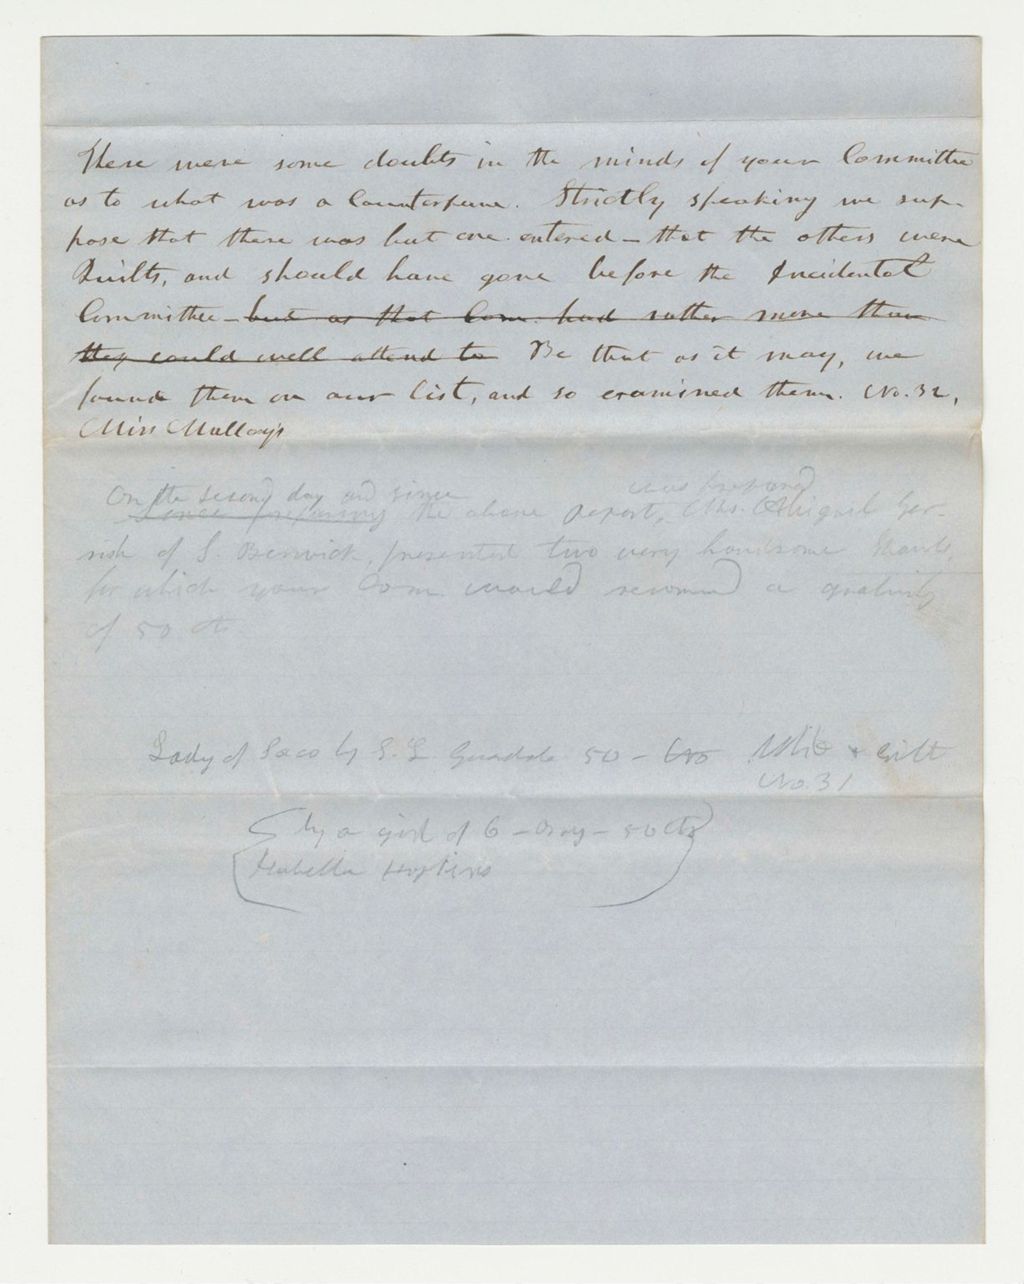 There were some doubts in the minds of your Committee
as to what was a Counterpane. Strictly speaking we sup-
pose that there was but one entered – that the others were
Quilts, and should have gone before the Incidental
Committee – but as that Com. had rather more than
they could well attend to Be that as it may, we
found them on our list, and so examined them. No. 32,
Miss Mulloy's
On the second day and since was prepared
Since preparing the above report, Mrs. Abigail Ger-
rish of S. Berwick, presented two very handsome Shawls,
for which your Com. would recommend a gratuity
of 50 cts.
Lady of Saco by S. L. 50 – & Gilt
No. 31
by a girl of 6 – – 50 cts
Isabella Hopkins